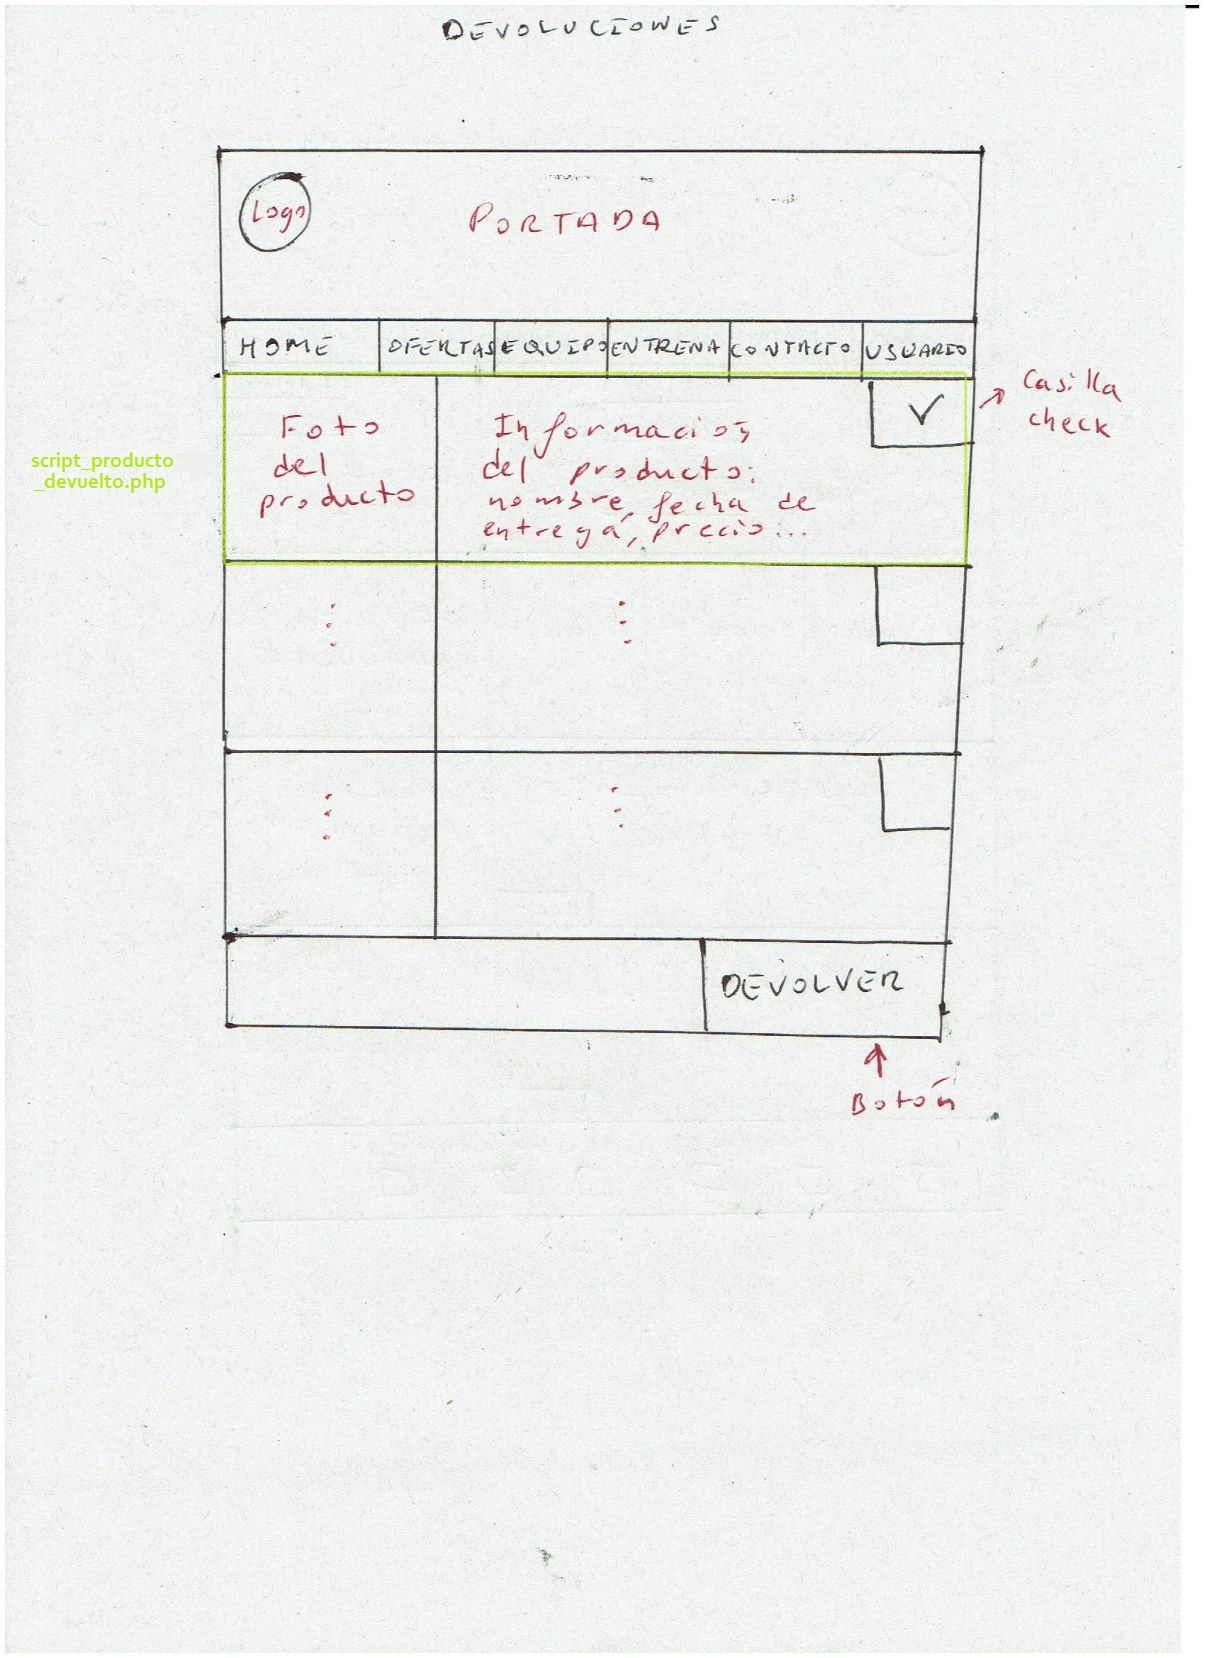 DEVOLUCIONES
Logo
PORTADA
HOME OFERTAS EQUIPO ENTRENA CONTACTO USUARIO
Casilla
check
script_producto
_devuelto.php
Foto
del
producto
Información
del producto:
nombre, fecha de
entrega, precio...
DEVOLVER
Botón